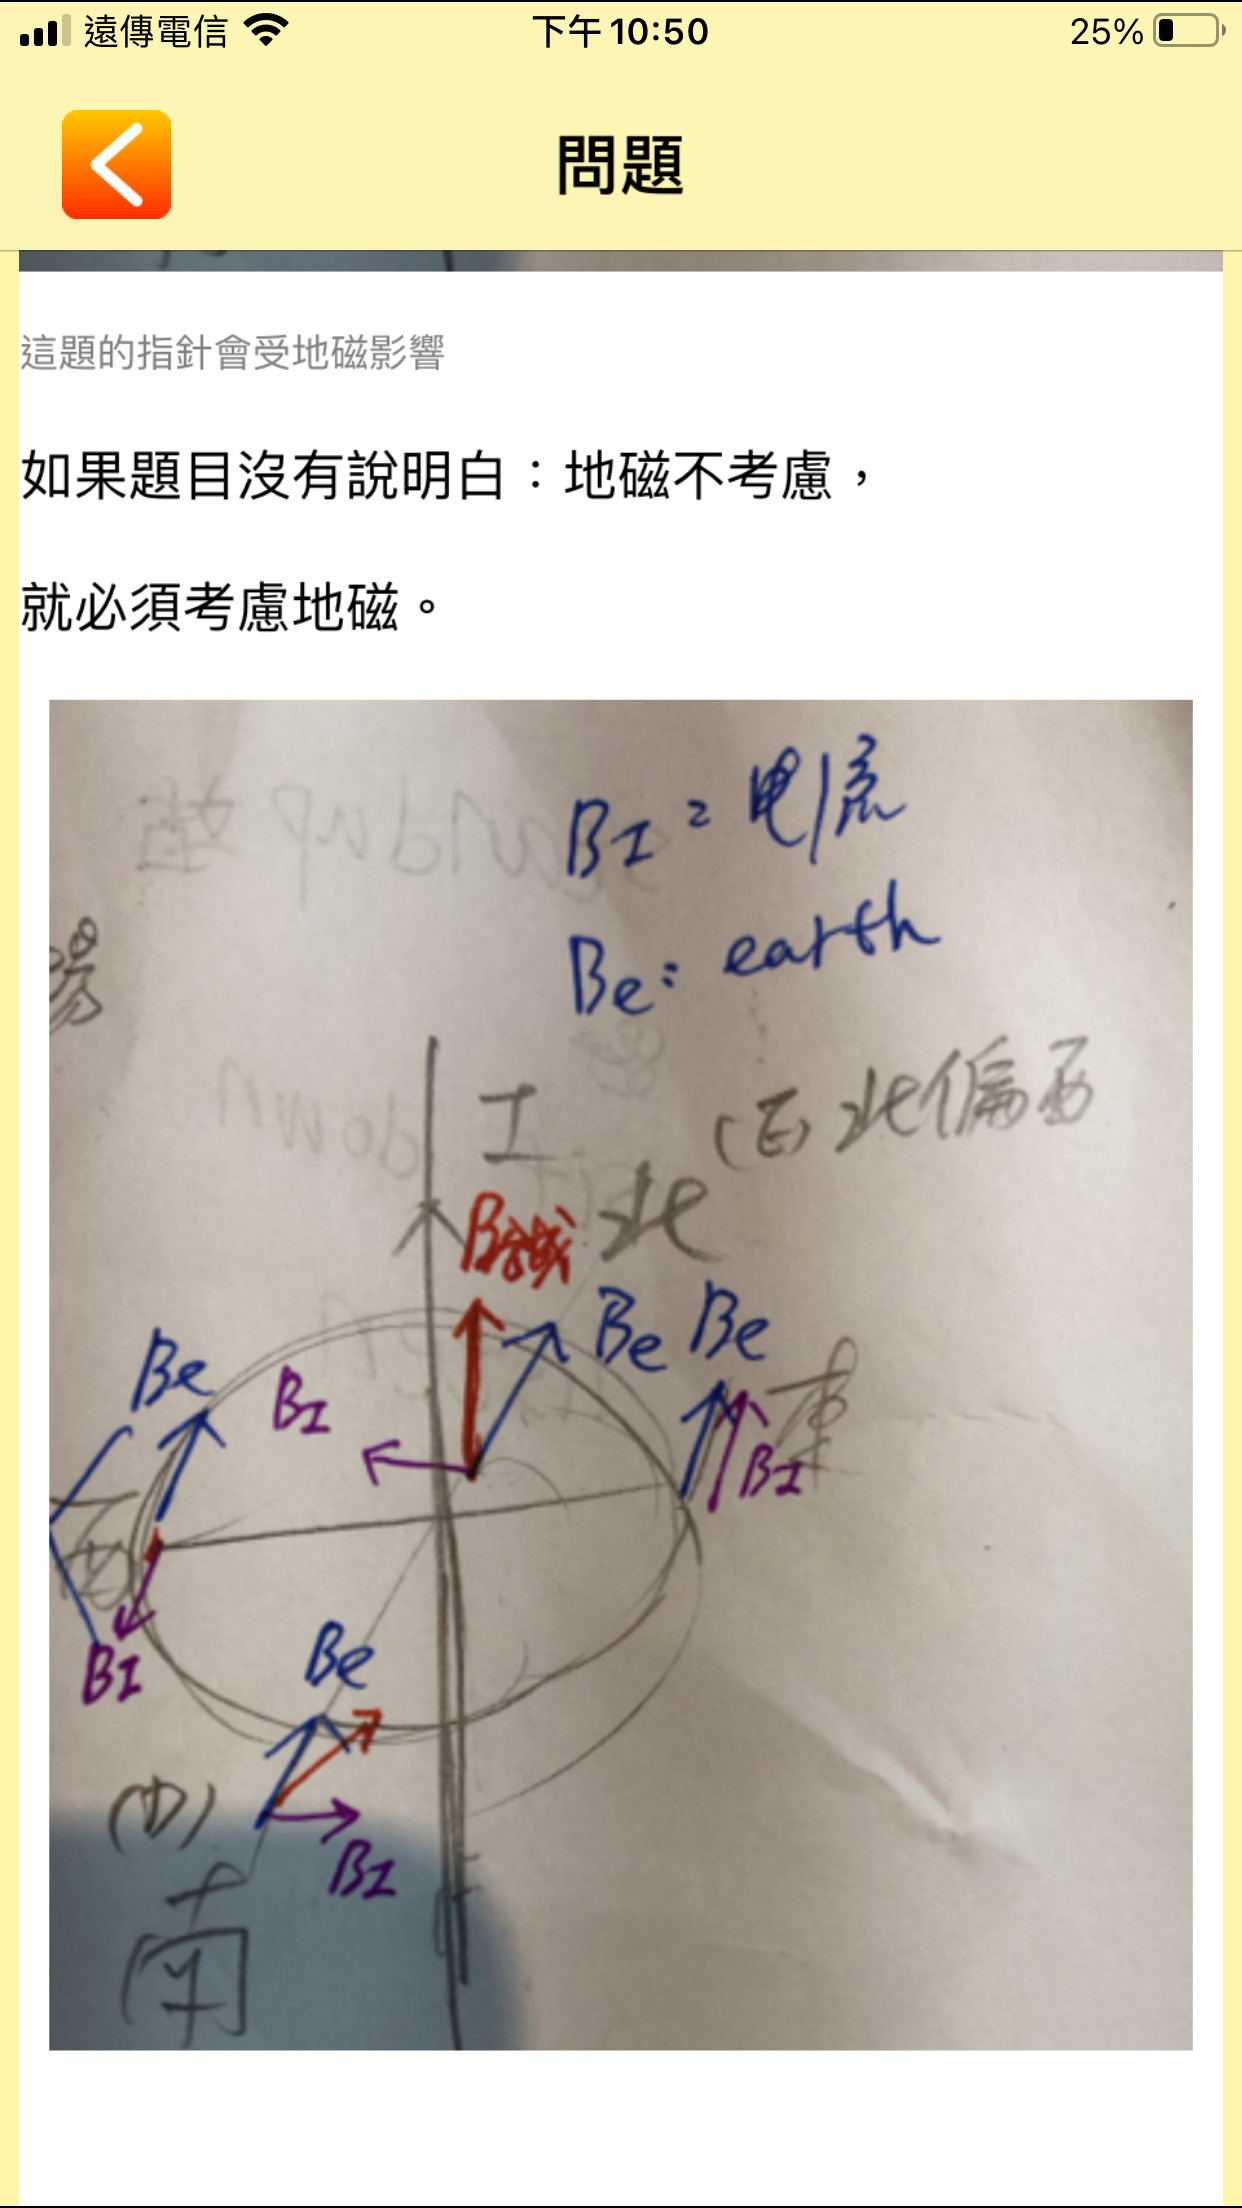 遠傳電信 下午10:50 25%
問題
這題的指針會受地磁影響
如果題目沒有說明白：地磁不考慮，
就必須考慮地磁。
BI = 电流
Be: earth
I
北偏西
北
Be
Be Be
BI
東
BI
西
BI
Be
BI
南